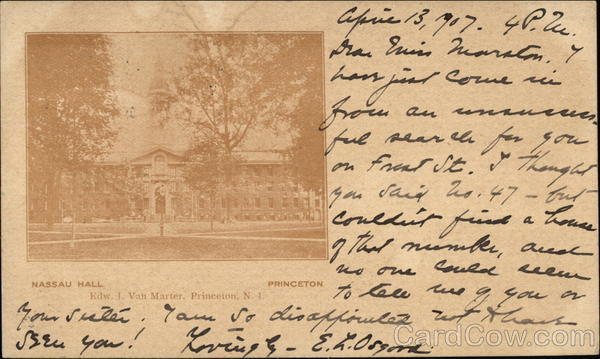 April 13, 1907. 4 P.M.
Dear Miss Marston. I
have just come in
from an unsuccess-
ful search for you
on Frost St. I thought
you said No. 47 - but
couldn't find a house
of that number, and
no one could seem
to tell me of you or
your sister. I am so disappointed not to have
seen you! Lovingly - E.L. Osgood.
NASSAU HALL PRINCETON
Edw. I. Van Marter, Princeton, N. J.
CardCow.com